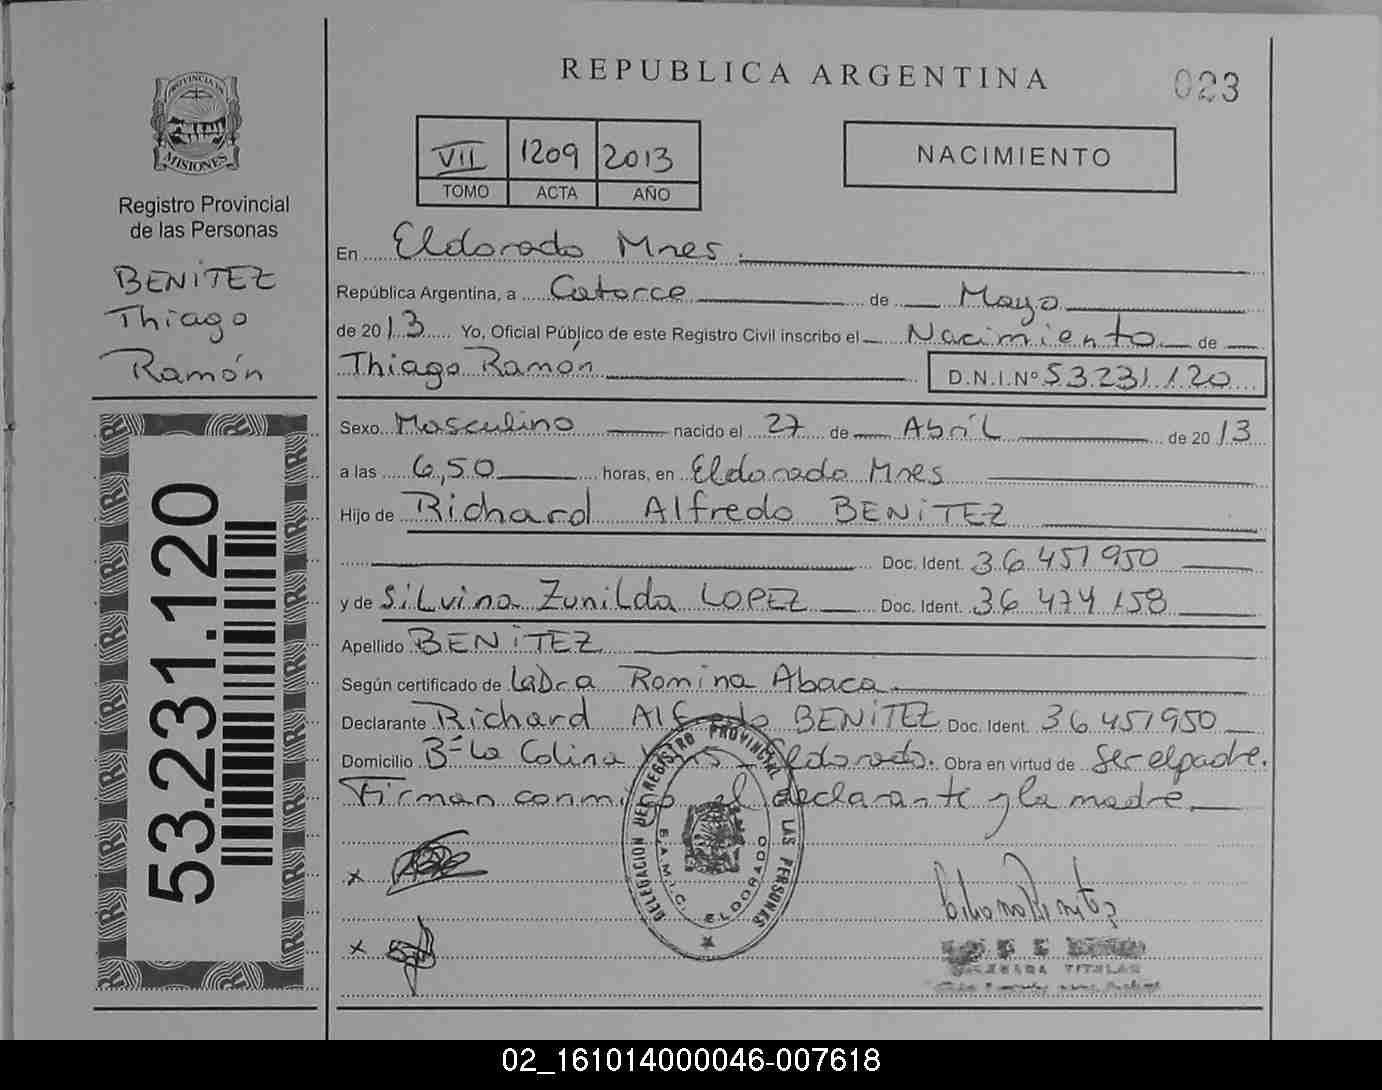 REPUBLICA ARGENTINA
023
PROVINCIA DE
MISIONES
Registro Provincial
de las Personas
BENITEZ
Thiago
Ramón
53.231.120
VII 1209 2013
TOMO ACTA AÑO
NACIMIENTO
En Eldorado Mnes.
República Argentina, a Catorce de Mayo
de 2013 Yo, Oficial Público de este Registro Civil inscribo el Nacimiento de
Thiago Ramón D.N.I.Nº 53.231.120
Sexo Masculino nacido el 27 de Abril de 2013
a las 6,50 horas, en Eldorado Mnes
Hijo de Richard Alfredo BENITEZ
Doc. Ident. 36 451 950
y de Silvina Zunilda LOPEZ Doc. Ident. 36 474 158
Apellido BENITEZ
Según certificado de LaDra Romina Abaca.
Declarante Richard Alfredo BENITEZ Doc. Ident. 36 451 950
Domicilio Bº La Colina Eldorado. Obra en virtud de Ser el padre.
Firman conmigo el declarante y la madre
DELEGACION DEL REGISTRO PROVINCIAL LAS PERSONES
S.A.M.I.C. ELDORADO
x
x
TITULAR
02_161014000046-007618